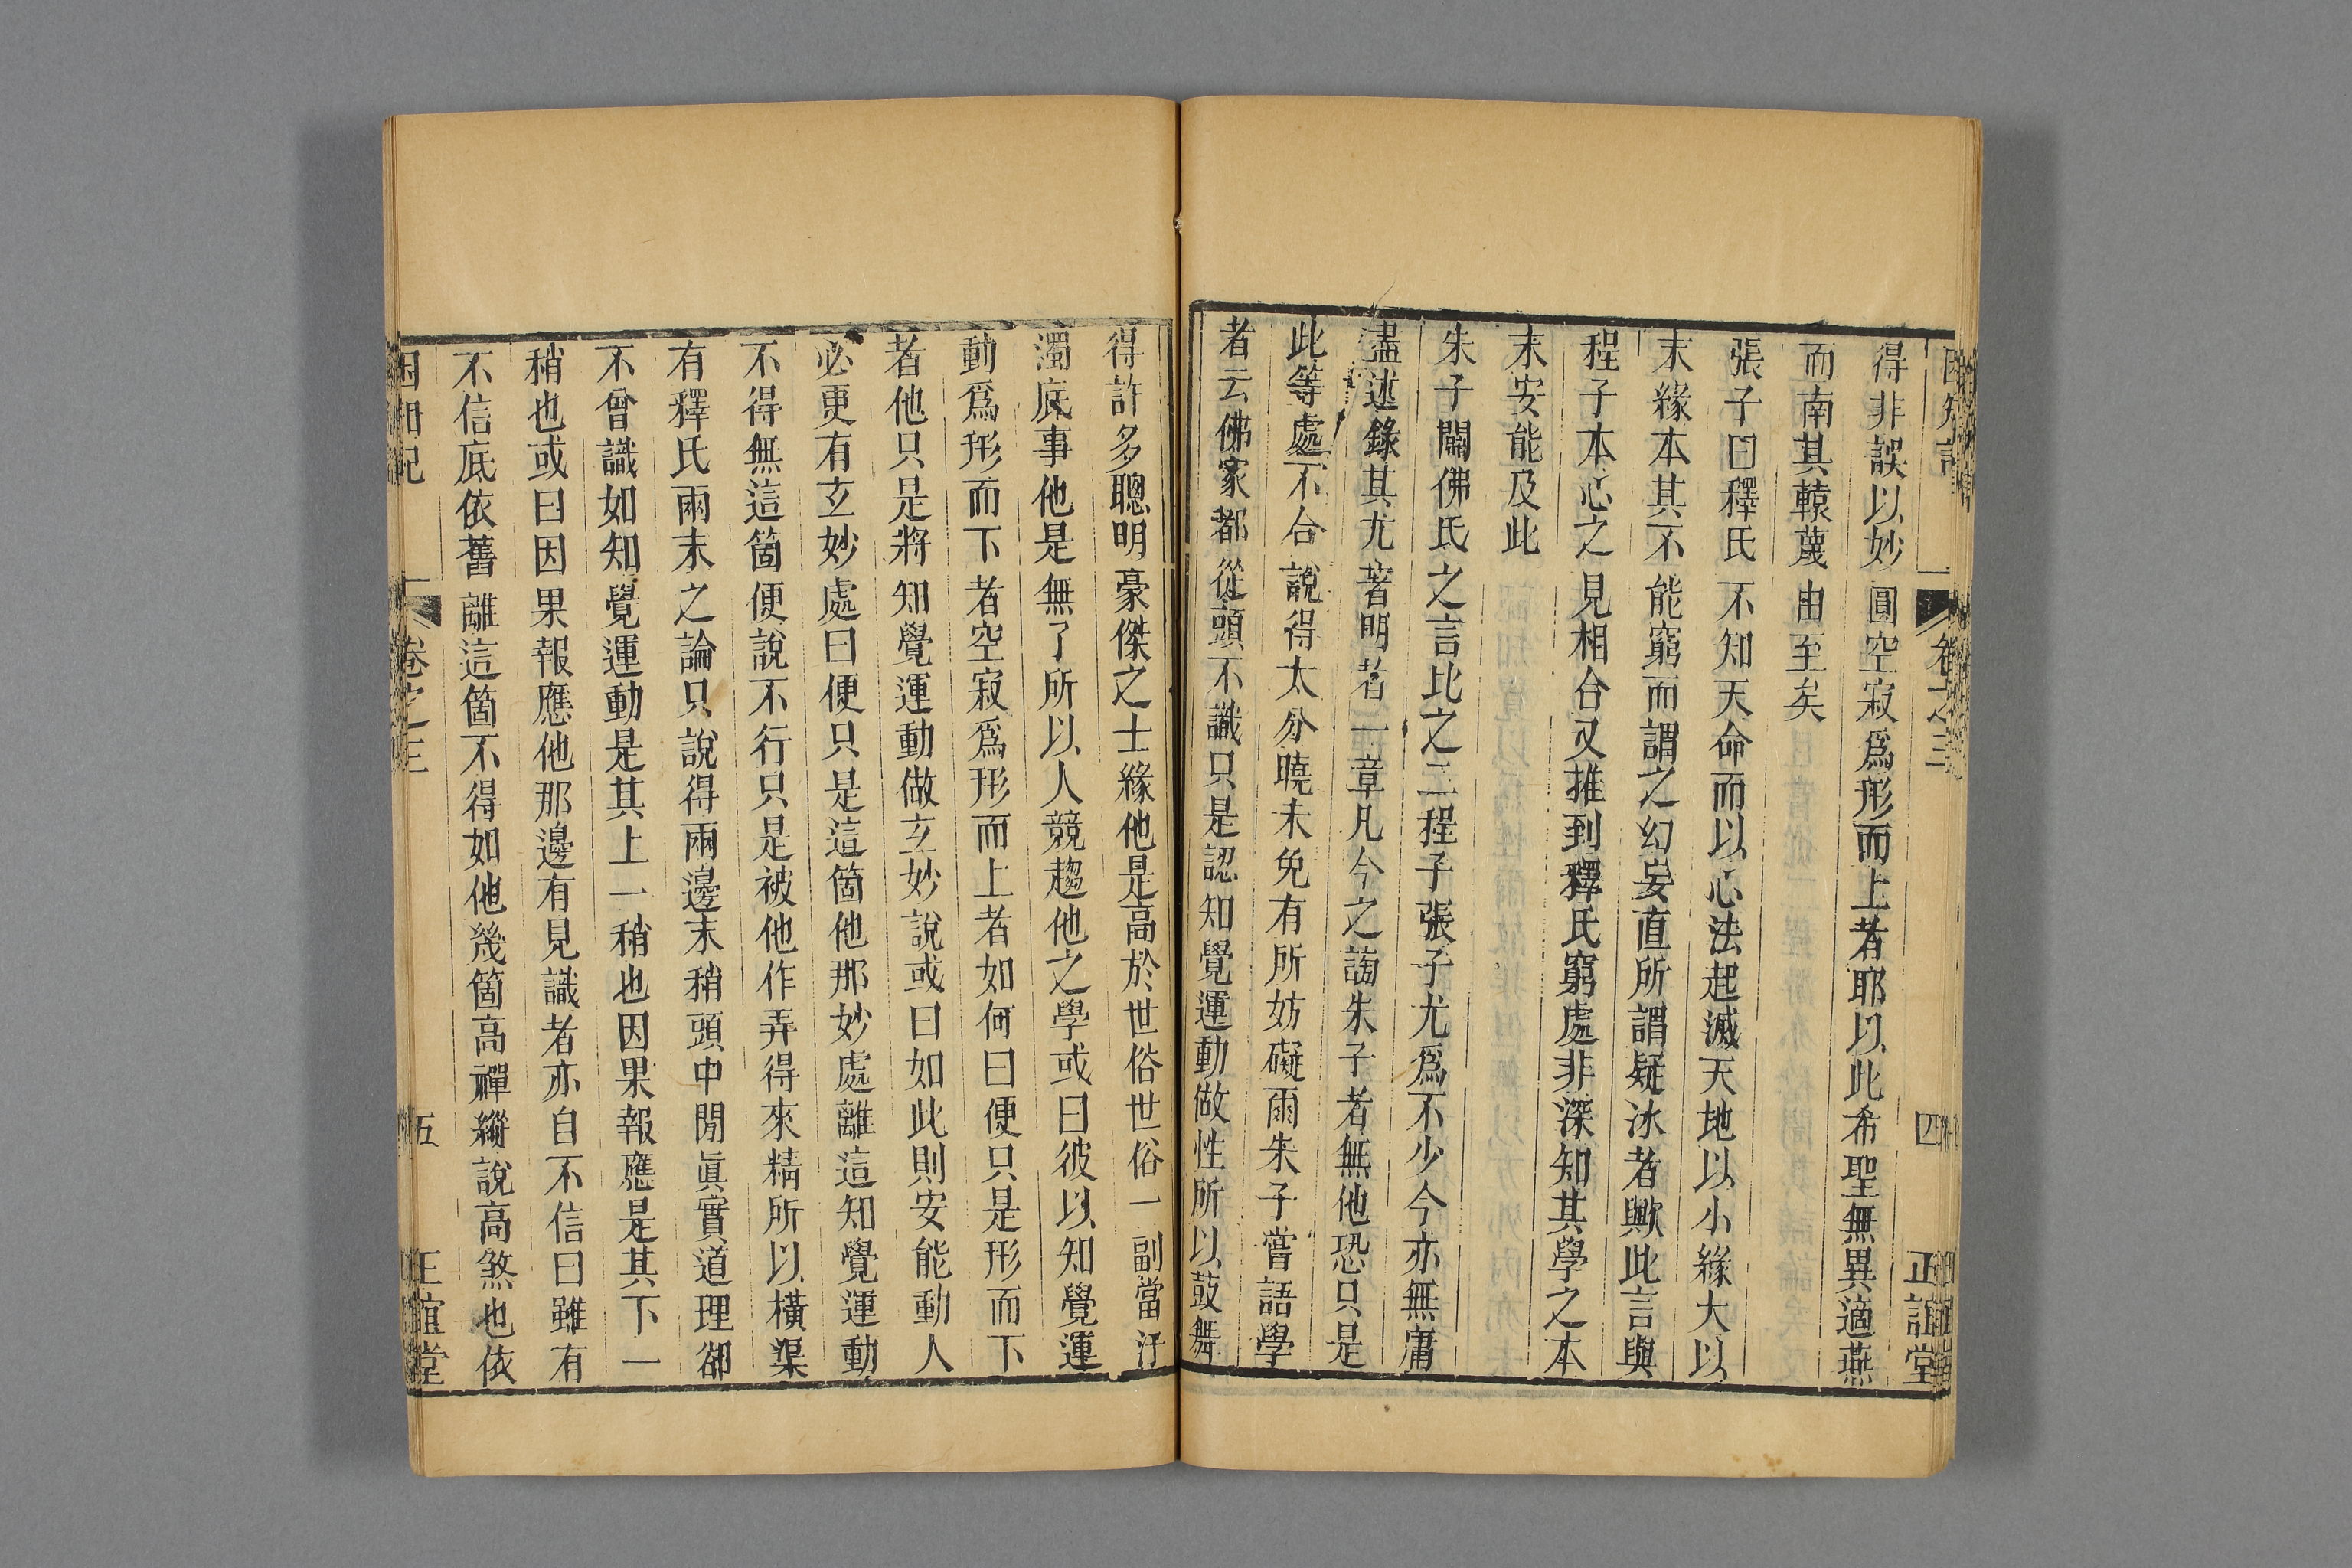 困知記 卷之三 四 正誼堂
得非誤以妙圓空寂爲形而上者耶以此希聖無異適燕
而南其轅蔑由至矣
張子曰釋氏不知天命而以心法起滅天地以小緣大以
末緣本其不能窮而謂之幻妄直所謂疑冰者歟此言與
程子本心之見相合又推到釋氏窮處非深知其學之本
末安能及此
朱子闢佛氏之言比之二程子張子尤爲不少今亦無庸
盡述錄其尤著明者一章凡今之謗朱子者無他恐只是
此等處不合說得太分曉未免有所妨礙爾朱子嘗語學
者云佛家都從頭不識只是認知覺運動做性所以鼓舞
得許多聰明豪傑之士緣他是高於世俗世俗一副當汙
濁底事他是無了所以人競趨他之學或曰彼以知覺運
動爲形而下者空寂爲形而上者如何曰便只是形而下
者他只是將知覺運動做玄妙說或曰如此則安能動人
必更有玄妙處曰便只是這箇他那妙處離這知覺運動
不得無這箇便說不行只是被他作弄得來精所以橫渠
有釋氏兩末之論只說得兩邊末稍頭中閒眞實道理卻
不曾識如知覺運動是其上一稍也因果報應是其下一
稍也或曰因果報應他那邊有見識者亦自不信曰雖有
不信底依舊離這箇不得如他幾箇高禪縱說高煞也依
困知記 卷之三 五 正誼堂